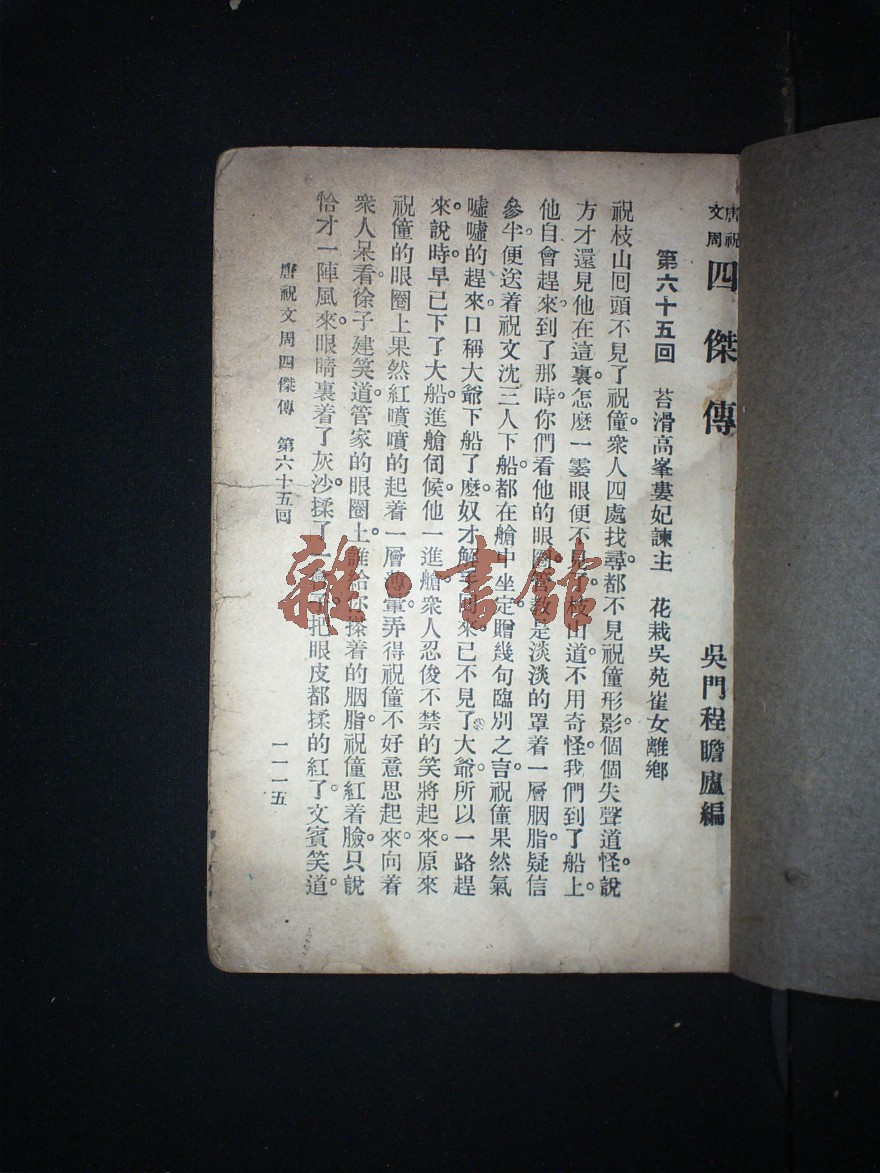 唐祝文周四傑傳
吳門程瞻廬編
第六十五回　苔滑高峯婁妃諫主　花栽吳苑崔女離鄉
祝枝山囘頭不見了祝僮。衆人四處找尋。都不見祝僮形影。個個失聲道怪。說
方才還見他在這裏。怎麽一霎眼便不見了。枝山道。不用奇怪。我們到了船上。
他自會趕來。到了那時。你們看他的眼圈。管教是淡淡的罩着一層胭脂。疑信
參半。便送着祝文沈三人下船。都在艙中坐定。贈幾句臨別之言。祝僮果然氣
噓噓的趕來。口稱大爺下船了麽。奴才解手回來。已不見了大爺。所以一路趕
來。說時早已下了大船。進艙伺候。他一進艙。衆人忍俊不禁的笑將起來。原來
祝僮的眼圈上果然紅噴噴的起着一層薄暈。弄得祝僮不好意思起來。向着
衆人呆看。徐子建笑道。管家的眼圈上。誰給你搽着的胭脂。祝僮紅着臉。只說
恰才一陣風來。眼睛裏着了灰沙。揉了一會子。把眼皮都揉的紅了。文賓笑道。
唐祝文周四傑傳　第六十五回
一一一五
雜·書館